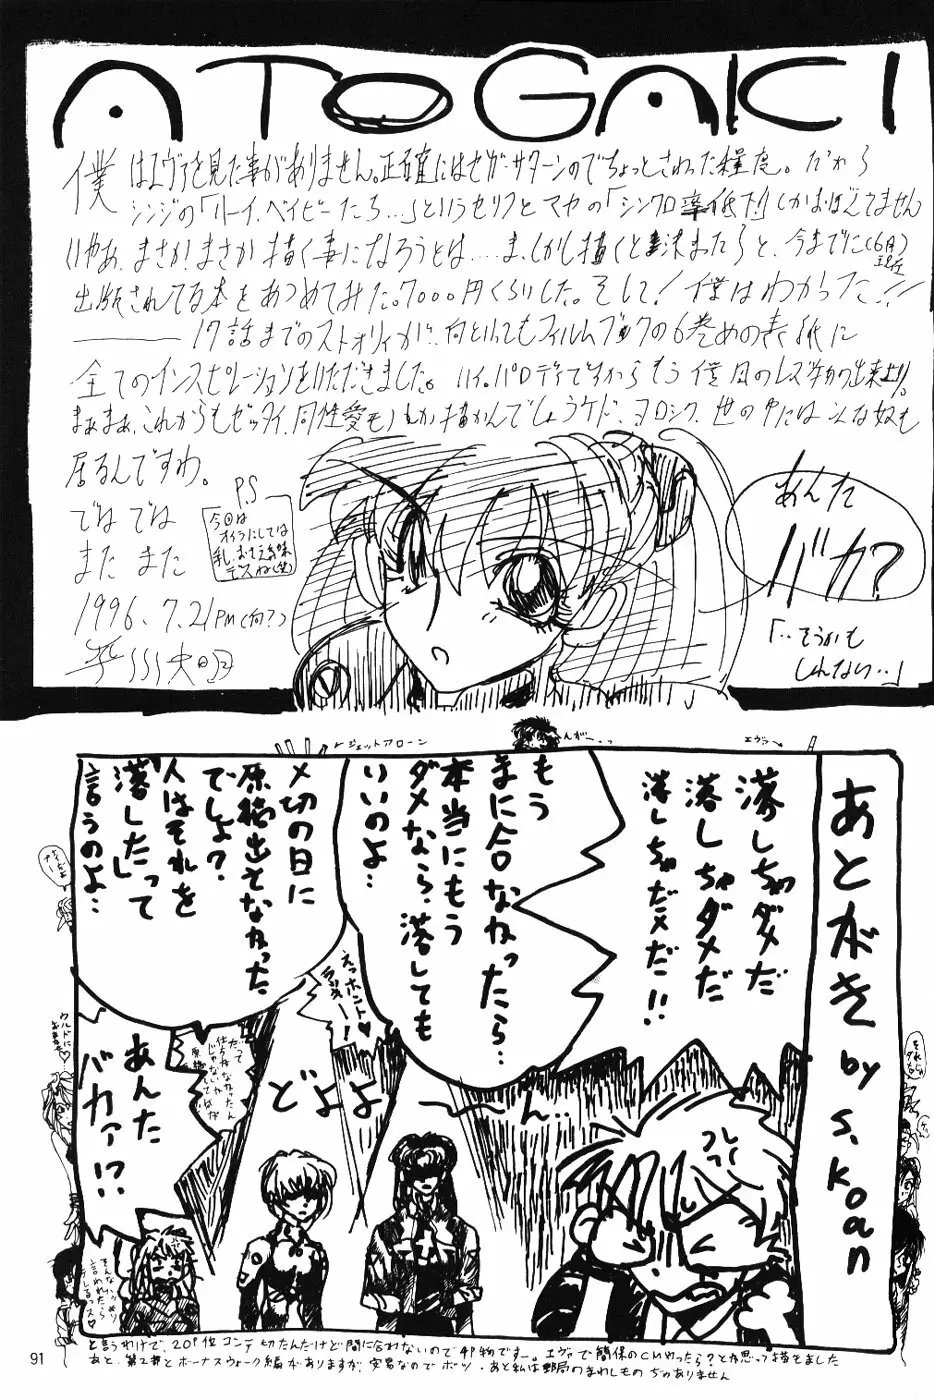 ATOGAKI
僕はエヴァを見た事がありません。正確にはセガ・サターンのでちょっとさわった程度。だから
シンジの「ハーイ、ベイビーたち…」というセリフとマヤの「シンクロ率低下!」しかおぼえてません
いやあ、まさか、まさか描く事になろうとは……ま、しかし描くと決まったらと、今までに(6月現在)
出版されてる本をあつめてみた。7000円くらいした。そして!僕はわかった!!
――17話までのストオリィがに、何といってもフィルムブックの6巻めの表紙に
全てのインスピレーションをいただきました。ハイ。パロディですからもう僕風のレズ物の出来上り。
まぁまぁ、これからもゼッタイ、同性愛モノしか描かんでしょうケド、ヨロシク、世の中にはこんな奴も
居るんですわ。
ではでは
また また
1996.7.21PM(何?)
P.S
今回は
オイラにしては
乳、おさえ気味
デスね(笑)
あんた
バカ?
「‥そうかも
しれない‥」
ジェットアローン
エヴァ
あとがき by S.Koan
落しちゃダメだ
落しちゃダメだ
落しちゃだメだ!!
もう
まに合わなかったら…
本当にもう
ダメなら、落しても
いいのよ…
〆切の日に
原稿出せなかった
でしょ?
人はそれを
「落した」って
言うのよ…
えっホント♥
ラッキー!
どよよ〜ん‥
だって
仕方なかったん
じゃないか
あんた
バカァ!?
と言うわけで、20P位コンテ切たんだけど間に合わないので4P物ですー。エヴァで簡保のCMやったら?とか思って描きました
あと、第2部とボーナスウォーク編がありますが、安易なのでボツ・あと私は郵局のまわしものぢゃありません
91